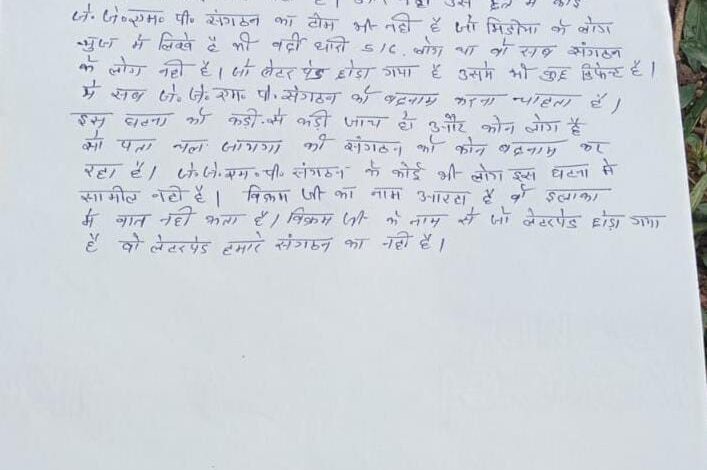 है। उस दल में कोई
जे. जे०एम० पी० संगठन का टीम भी नही है जो मिडीया के लोग
न्युज में लिखे है की वर्दी धारी S/C. लोग था वो सब संगठन
के लोग नही है। जो लेटर पेड छोडा गया है उसमे भी कुछ डिफेन्ट है।
में सब जे. जे. एम. पी. संगठन को बदनाम करना चाहता है।
इस घटना को कडी-से कडी जाच हो और कोन लोग है
सो पता चल जायगा की संगठन को कोन बदनाम कर
रहा है। जे.जे.एम.पी. संगठन के कोई भी लोग इस घटना मे
सामील नही है। विक्रम जी का नाम आरहा है वो इलाका
में नही है। विक्रम जी के नाम से जो लेटरपेड छोडा गया
है वो लेटरपेड हमारे संगठन का नही है।